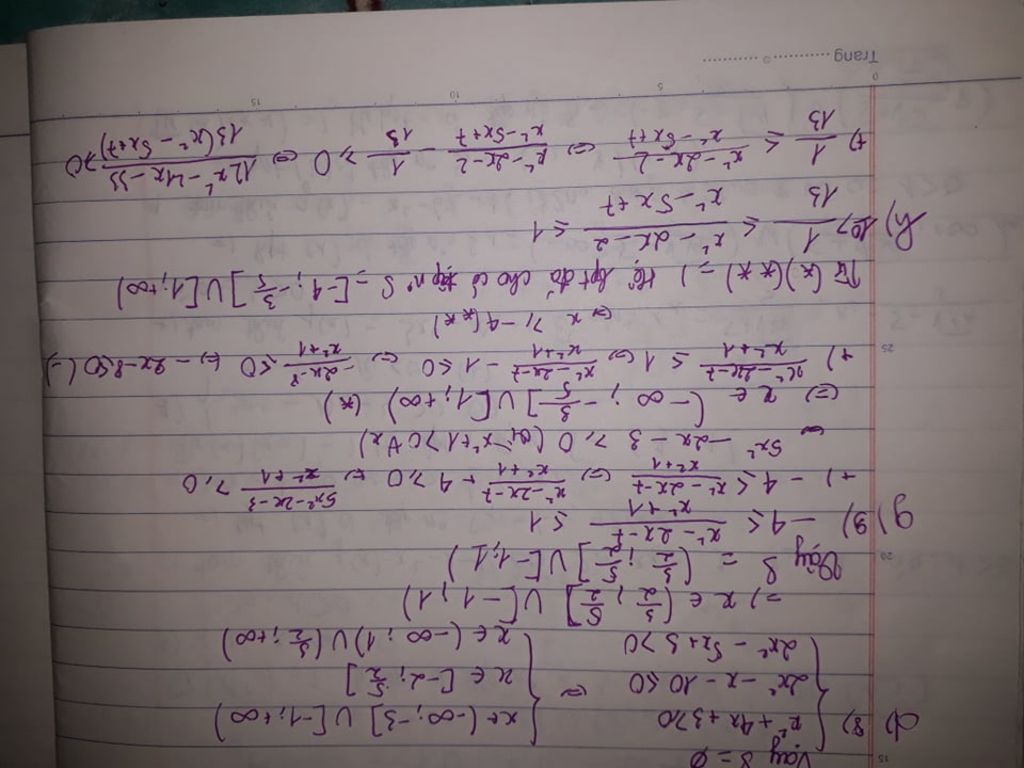 Vậy S = ∅
d) 8) { x² + 4x + 3 ≥ 0 { x ∈ (-∞; -3] ∪ [-1; +∞)
2x² - x - 10 ≤ 0 ⇔ x ∈ [-2; 5/2]
2x² - 5x + 3 > 0 x ∈ (-∞; 1) ∪ (3/2; +∞)
=) x ∈ (3/2; 5/2] ∪ [-1; 1)
Vậy S = (3/2; 5/2] ∪ [-1; 1)
g) 9) -4 ≤ (x² - 2x - 7)/(x² + 1) ≤ 1
+) -4 ≤ (x² - 2x - 7)/(x² + 1) ⇔ (x² - 2x - 7)/(x² + 1) + 4 ≥ 0 ⇔ (5x² - 2x - 3)/(x² + 1) ≥ 0
⇔ 5x² - 2x - 3 ≥ 0 (vì x² + 1 > 0 ∀x)
=) x ∈ (-∞; -3/5] ∪ [1; +∞) (*)
+) (x² - 2x - 7)/(x² + 1) ≤ 1 ⇔ (x² - 2x - 7)/(x² + 1) - 1 ≤ 0 ⇔ (-2x - 8)/(x² + 1) ≤ 0 ⇔ -2x - 8 ≤ 0 (-)
⇔ x ≥ -4 (**)
Từ (*)(**) =) Hệ bpt đã cho có tập n° S = [-4; -3/5] ∪ [1; +∞)
h) 10) 1/13 ≤ (x² - 2x - 2)/(x² - 5x + 7) ≤ 1
+) 1/13 ≤ (x² - 2x - 2)/(x² - 5x + 7) ⇔ (x² - 2x - 2)/(x² - 5x + 7) - 1/13 ≥ 0 ⇔ (12x² - 21x - 33)/(13(x² - 5x + 7)) ≥ 0
Trang
0 5 10 15
15
20
25